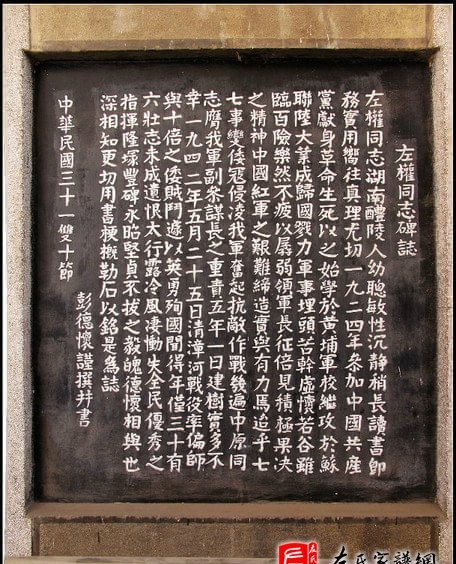 左權同志碑誌
左權同志湖南醴陵人幼聰敏性沉静稍長讀書即
務實用嚮往真理尤切一九二四年叅加中國共產
黨獻身革命生死以之始學於黃埔軍校繼攻於蘇
聯陸大業成歸國戮力軍事埋頭苦幹虛懷若谷雖
臨百險樂然不疲以孱弱領軍長征倍見積極果決
之精神中國紅軍之艱難締造實與有力焉迨乎七
七事變倭寇侵淩我軍奮起抗敵作戰幾遍中原同
志膺我軍副叅謀長之重責五年一日建樹實多不
幸一九四二年五月二十五日清漳河戰役率偏師
與十倍之倭賊鬥遽以英勇殉國聞得年僅三十有
六壯志未成遺恨太行露冷風淒慟失全民優秀之
指揮隆塚豐碑永昭堅貞不拔之毅魄德懷相與也
深相知更切用書梗概勒石以銘是爲誌
彭德懷謹撰并書
中華民國三十一雙十節
左氏家譜網